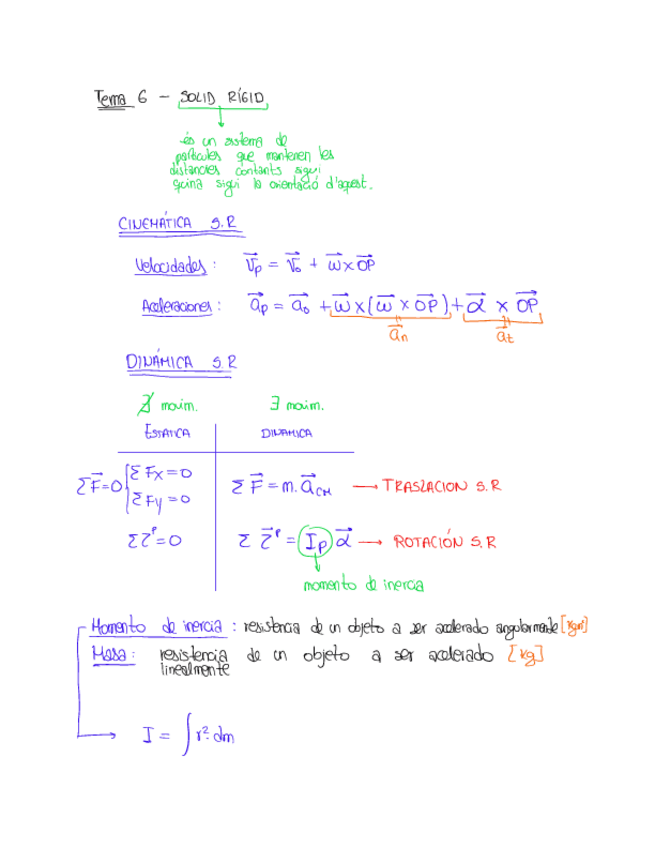 Tema 6 - SOLID RÍGID
és un sistema de
partícules que mantenen les
distàncies contants sigui
quina sigui la orientació d'aquest.
CINEMÁTICA S.R
Velocidades: v⃗p = v⃗o + ω⃗ x OP⃗
Aceleraciones: a⃗p = a⃗o + ω⃗ x (ω⃗ x OP⃗) + α⃗ x OP⃗
a⃗n a⃗t
DINÁMICA S.R
∄ movim. ∃ movim.
ESTATICA DINAMICA
ΣF⃗=0 { ΣFx=0 ΣF⃗ = m.a⃗CM → TRASLACION S.R
ΣFy=0
Στᴾ=0 Στ⃗ᴾ = Ip α⃗ → ROTACIÓN S.R
momento de inercia
Momento de inercia: resistencia de un objeto a ser acelerado angularmente [kgm²]
Masa: resistencia de un objeto a ser acelerado [kg]
linealmente
I = ∫r²·dm